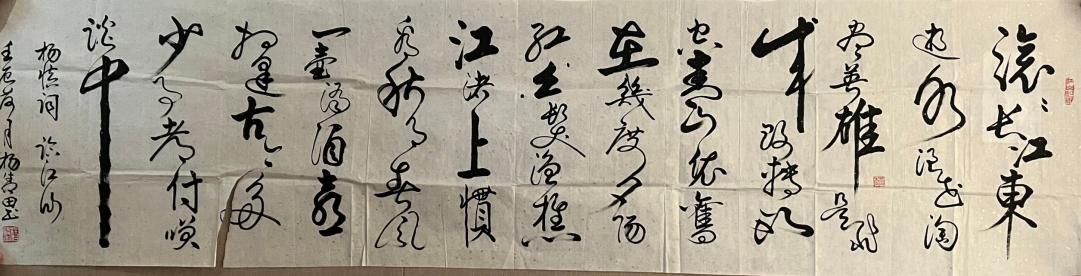 滚滚長江東
逝水浪花淘
盡英雄是非
成敗轉頭
空青山依舊
在幾度夕陽
紅白髮漁樵
江渚上慣
看秋月春風
一壺濁酒喜
相逢古今多
少事都付笑
談中
杨慎词 临江仙
壬辰荷月杨青田书